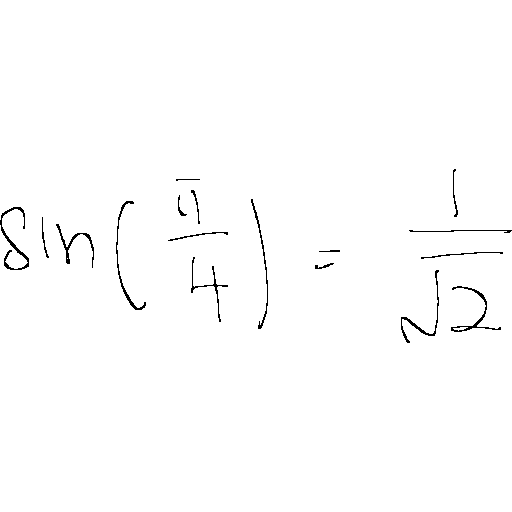 sin(π/4) = 1/√2